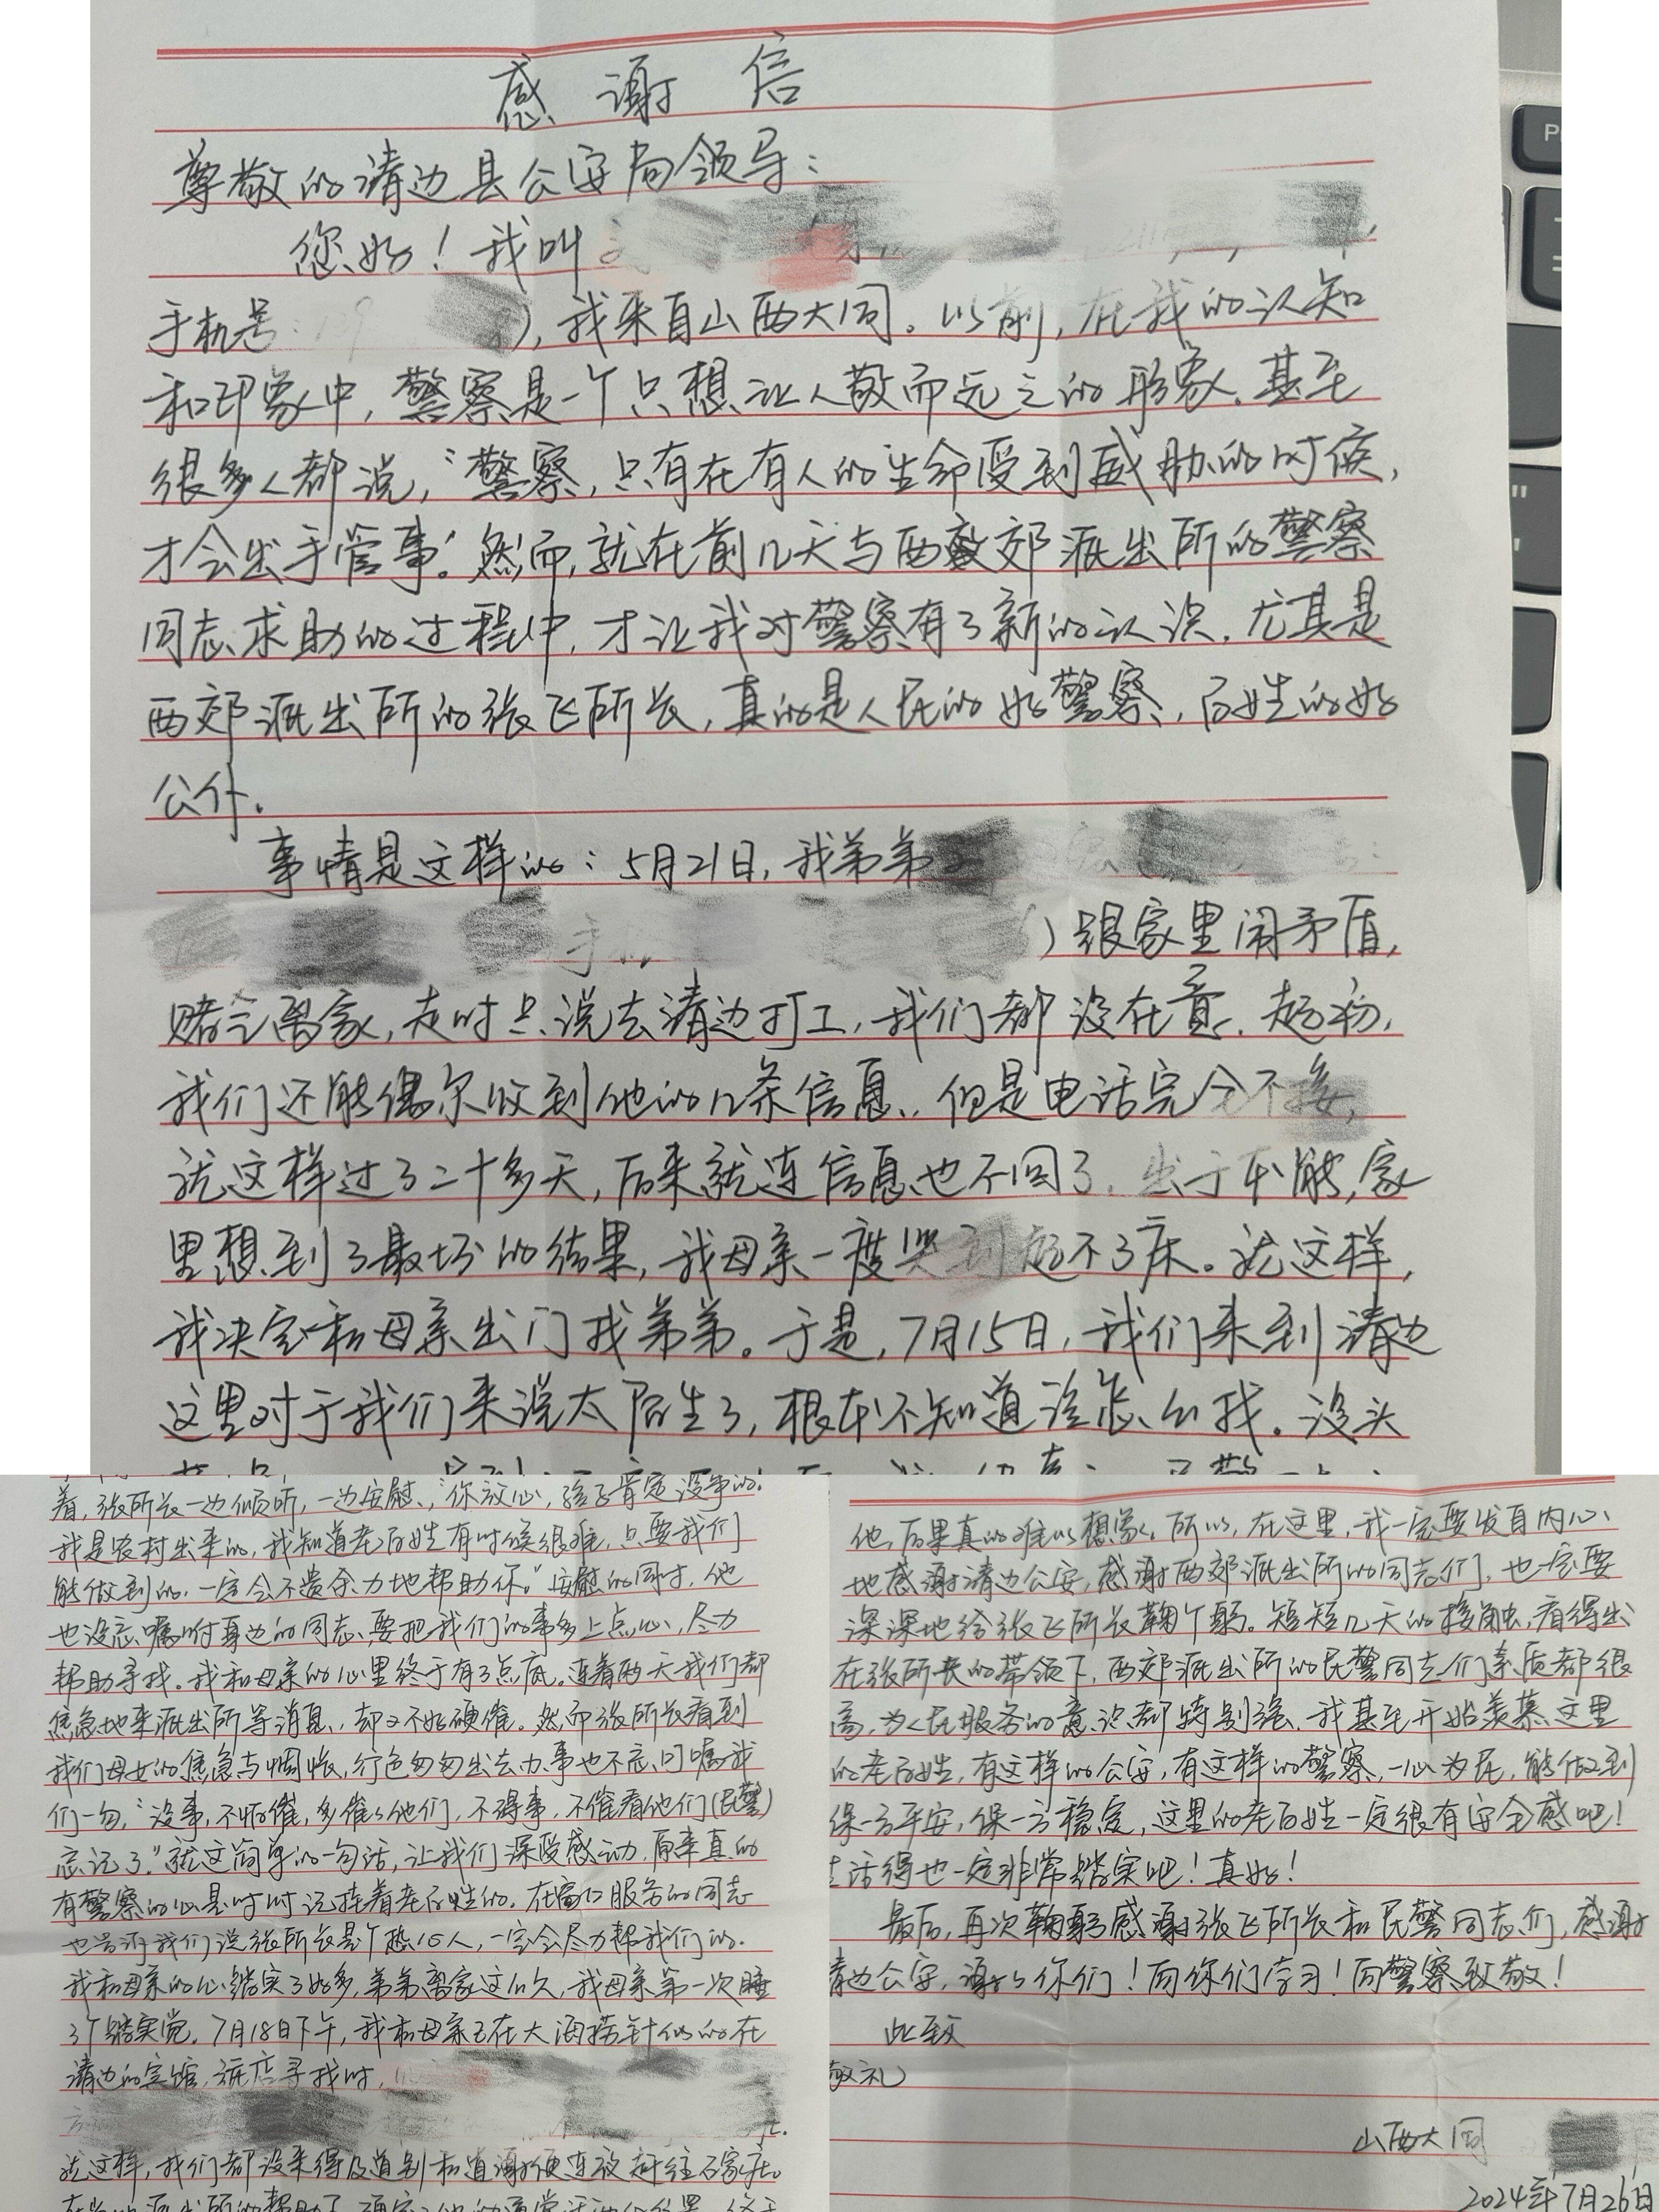 感谢信
尊敬的清边县公安局领导：
您好！我叫
手机号：），我来自山西大同。以前，在我的认知
和印象中，警察是一个只想让人敬而远之的形象。甚至
很多人都说，“警察，只有在有人的生命受到威胁的时候，
才会出手管事”。然而，就在前几天与西郊派出所的警察
同志求助的过程中，才让我对警察有了新的认识。尤其是
西郊派出所的张飞所长，真的是人民的好警察，百姓的好
公仆。
事情是这样的：5月21日，我弟弟
）跟家里闹矛盾，
赌气离家，走时只说去清边打工，我们都没在意。起初，
我们还能偶尔收到他的几条信息，但是电话完全不接，
就这样过了二十多天，后来就连信息也不回了。出于本能，家
里想到了最坏的结果，我母亲一度哭到起不了床。就这样，
我决定和母亲出门找弟弟。于是，7月15日，我们来到清边
这里对于我们来说太陌生了，根本不知道该怎么找。没头
着，张所长一边倾听，一边安慰，“你放心，孩子肯定没事的。
我是农村出来的，我知道老百姓有时候很难，只要我们
能做到的，一定会不遗余力地帮助你。”安慰的同时，他
也没忘嘱咐身边的同志，要把我们的事多上点心，尽力
帮助寻找。我和母亲的心里终于有了点底。连着两天我们都
焦急地来派出所等消息，却又不好硬催。然而张所长看到
我们母女的焦急与惆怅，行色匆匆出去办事也不忘叮嘱我
们一句，“没事，不怕催，多催催他们，不碍事，不催着他们（民警）
忘记了。”就这简单的一句话，让我们深受感动，原来真的
有警察的心是时时记挂着老百姓的。在窗口服务的同志
也告诉我们说张所长是个热心人，一定会尽力帮我们的。
我和母亲的心踏实了好多，弟弟离家这么久，我母亲第一次睡
了个踏实觉。7月18日下午，我和母亲正在大海捞针似的在
清边的宾馆，旅店寻找时，
就这样，我们都没来得及道别和道谢便连夜赶往石家庄。
他，后果真的难以想象。所以，在这里，我一定要发自内心
地感谢清边公安，感谢西郊派出所的同志们，也一定要
深深地给张飞所长鞠个躬。短短几天的接触，看得出
在张所长的带领下，西郊派出所的民警同志们素质都很
高，为人民服务的意识都特别强，我甚至开始羡慕这里
的老百姓，有这样的公安，有这样的警察，一心为民，能做到
保一方平安，保一方稳定，这里的老百姓一定很有安全感吧！
生活得也一定非常踏实吧！真好！
最后，再次鞠躬感谢张飞所长和民警同志们，感谢
清边公安，谢谢你们！向你们学习！向警察致敬！
此致
敬礼
山西大同
2024年7月26日